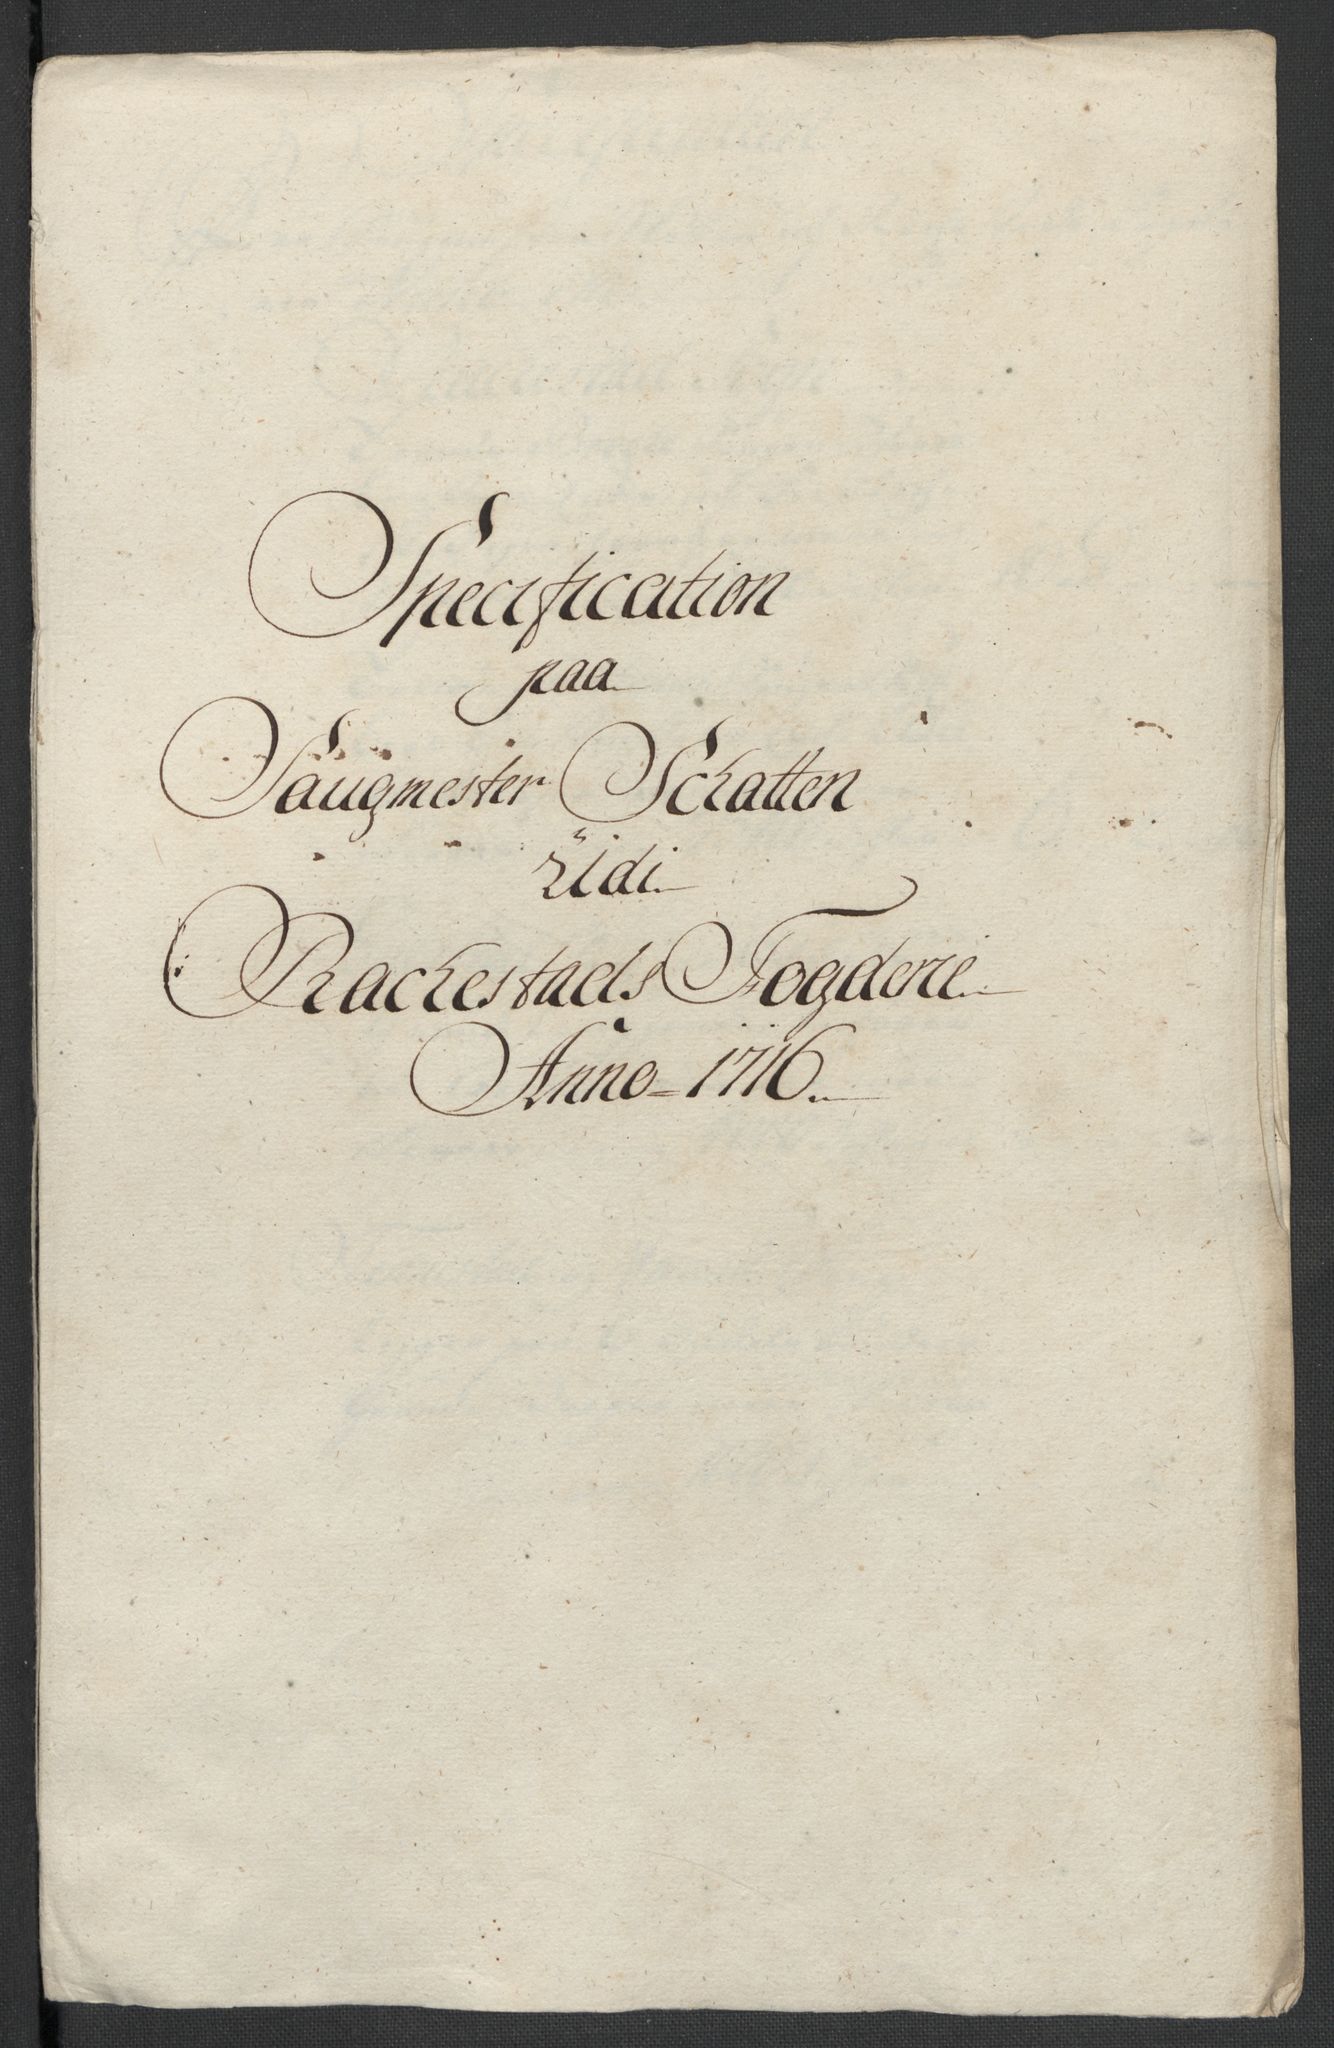 Specification
paa
Saugmester Schatten
udi
Rackestads Fogderie
Anno 1716.